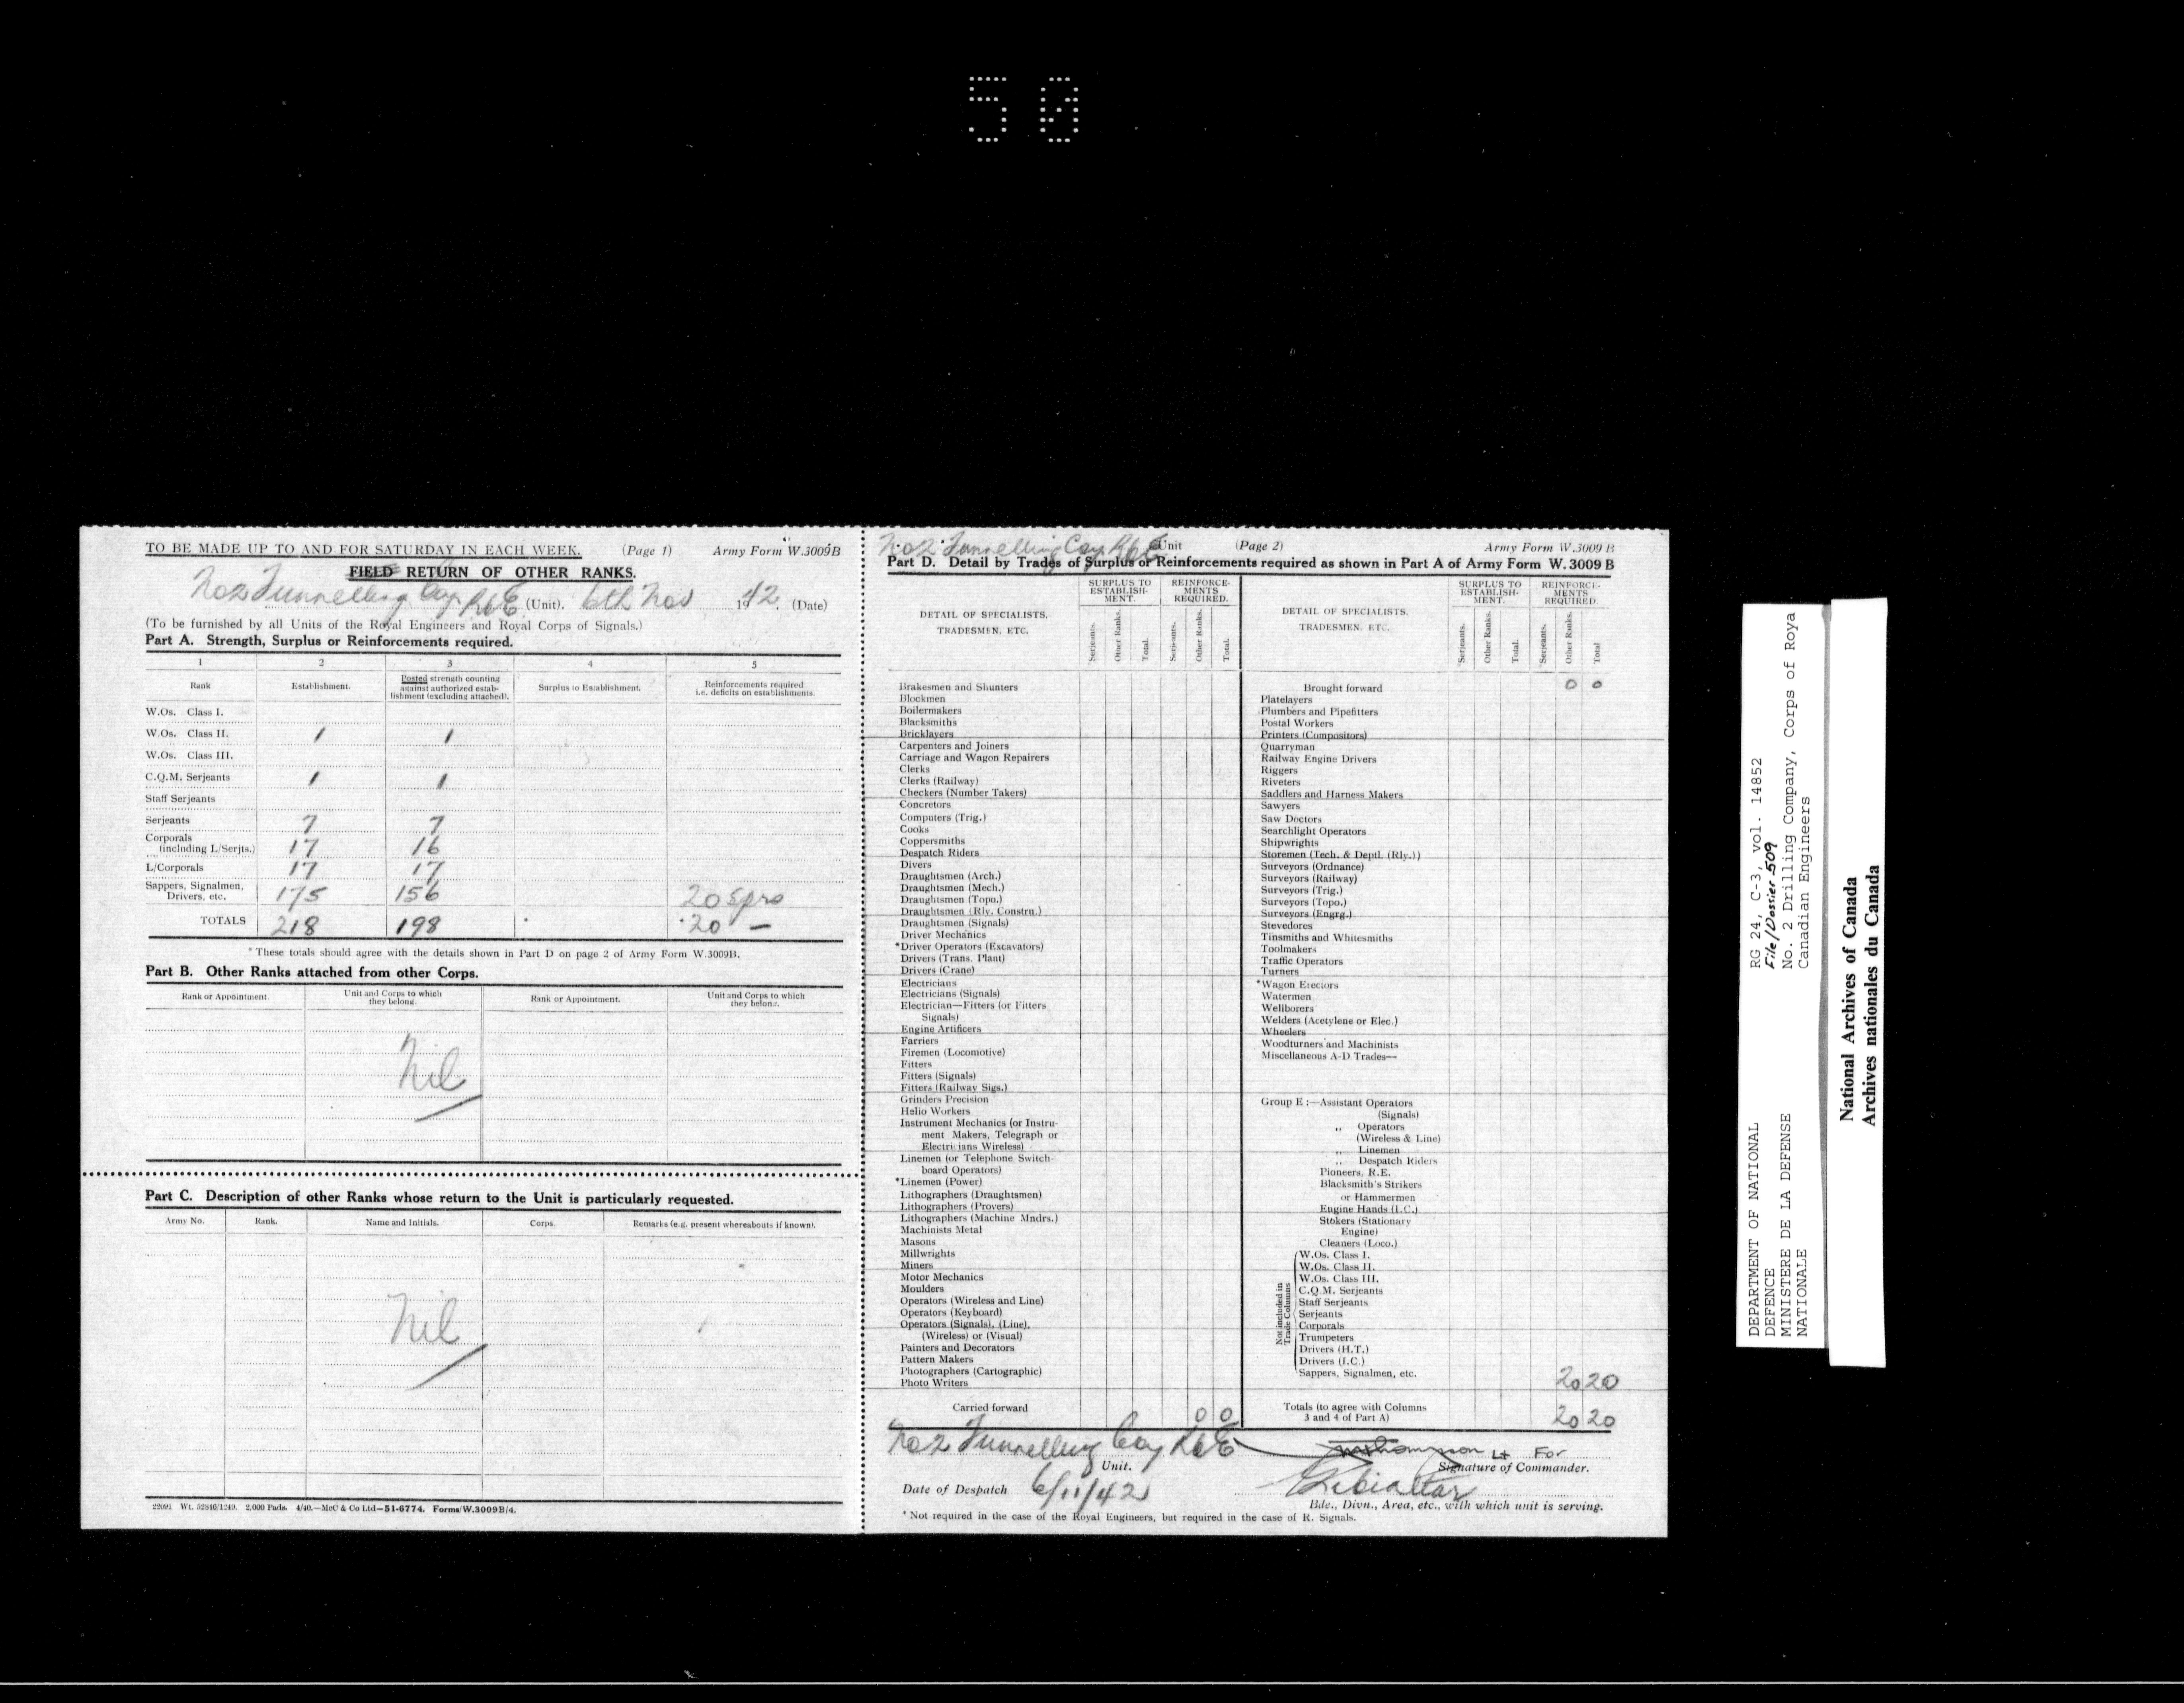 50
TO BE MADE UP TO AND FOR SATURDAY IN EACH WEEK. (Page 1) Army Form W.3009B
FIELD RETURN OF OTHER RANKS.
No 2 Tunnelling Coy RCE (Unit). 6th Nov 1942. (Date)
(To be furnished by all Units of the Royal Engineers and Royal Corps of Signals.)
Part A. Strength, Surplus or Reinforcements required.
1 2 3 4 5
Rank Establishment. Posted strength counting against authorized establishment (excluding attached). Surplus to Establishment. Reinforcements required i.e. deficits on establishments.
W.Os. Class I.
W.Os. Class II. 1 1
W.Os. Class III.
C.Q.M. Serjeants 1 1
Staff Serjeants
Serjeants 7 7
Corporals
(including L/Serjts.) 17 16
L/Corporals 17 17
Sappers, Signalmen,
Drivers, etc. 175 156 20 Sprs
TOTALS 218 198 20 —
* These totals should agree with the details shown in Part D on page 2 of Army Form W.3009B.
Part B. Other Ranks attached from other Corps.
Rank or Appointment. Unit and Corps to which they belong. Rank or Appointment. Unit and Corps to which they belong.
Nil
Part C. Description of other Ranks whose return to the Unit is particularly requested.
Army No. Rank. Name and Initials. Corps. Remarks (e.g. present whereabouts if known).
Nil
22091 Wt. 52846/1249. 2,000 Pads. 4/40.—McC & Co Ltd—51-6774. Forms/W.3009B/4.
No 2 Tunnelling Coy RCE Unit (Page 2) Army Form W.3009 B
Part D. Detail by Trades of Surplus or Reinforcements required as shown in Part A of Army Form W.3009 B
DETAIL OF SPECIALISTS, TRADESMEN, ETC. SURPLUS TO ESTABLISHMENT. REINFORCEMENTS REQUIRED.
Serjeants. Other Ranks. Total. Serjeants. Other Ranks. Total.
Brakesmen and Shunters
Blockmen
Boilermakers
Blacksmiths
Bricklayers
Carpenters and Joiners
Carriage and Wagon Repairers
Clerks
Clerks (Railway)
Checkers (Number Takers)
Concretors
Computers (Trig.)
Cooks
Coppersmiths
Despatch Riders
Divers
Draughtsmen (Arch.)
Draughtsmen (Mech.)
Draughtsmen (Topo.)
Draughtsmen (Rly. Constrn.)
Draughtsmen (Signals)
Driver Mechanics
*Driver Operators (Excavators)
Drivers (Trans. Plant)
Drivers (Crane)
Electricians
Electricians (Signals)
Electrician—Fitters (or Fitters
Signals)
Engine Artificers
Farriers
Firemen (Locomotive)
Fitters
Fitters (Signals)
Fitters (Railway Sigs.)
Grinders Precision
Helio Workers
Instrument Mechanics (or Instru-
ment Makers, Telegraph or
Electricians Wireless)
Linemen (or Telephone Switch-
board Operators)
*Linemen (Power)
Lithographers (Draughtsmen)
Lithographers (Provers)
Lithographers (Machine Mndrs.)
Machinists Metal
Masons
Millwrights
Miners
Motor Mechanics
Moulders
Operators (Wireless and Line)
Operators (Keyboard)
Operators (Signals), (Line),
(Wireless) or (Visual)
Painters and Decorators
Pattern Makers
Photographers (Cartographic)
Photo Writers
Carried forward 0 0
DETAIL OF SPECIALISTS, TRADESMEN, ETC. SURPLUS TO ESTABLISHMENT. REINFORCEMENTS REQUIRED.
Serjeants. Other Ranks. Total. Serjeants. Other Ranks. Total
Brought forward 0 0
Platelayers
Plumbers and Pipefitters
Postal Workers
Printers (Compositors)
Quarryman
Railway Engine Drivers
Riggers
Riveters
Saddlers and Harness Makers
Sawyers
Saw Doctors
Searchlight Operators
Shipwrights
Storemen (Tech. & Deptl. (Rly.))
Surveyors (Ordnance)
Surveyors (Railway)
Surveyors (Trig.)
Surveyors (Topo.)
Surveyors (Engrg.)
Stevedores
Tinsmiths and Whitesmiths
Toolmakers
Traffic Operators
Turners
*Wagon Erectors
Watermen
Wellborers
Welders (Acetylene or Elec.)
Wheelers
Woodturners and Machinists
Miscellaneous A-D Trades—
Group E :—Assistant Operators
(Signals)
,, Operators
(Wireless & Line)
,, Linemen
,, Despatch Riders
Pioneers, R.E.
Blacksmith's Strikers
or Hammermen
Engine Hands (I.C.)
Stokers (Stationary
Engine)
Cleaners (Loco.)
Not included in Trade Columns
W.Os. Class I.
W.Os. Class II.
W.Os. Class III.
C.Q.M. Serjeants
Staff Serjeants
Serjeants
Corporals
Trumpeters
Drivers (H.T.)
Drivers (I.C.)
Sappers, Signalmen, etc. 20 20
Totals (to agree with Columns
3 and 4 of Part A) 20 20
No 2 Tunnelling Coy RCE Thompson Lt For
Unit. Signature of Commander.
Date of Despatch 6/11/42 Gibraltar
Bde., Divn., Area, etc., with which unit is serving.
* Not required in the case of the Royal Engineers, but required in the case of R. Signals.
DEPARTMENT OF NATIONAL
DEFENCE
MINISTERE DE LA DEFENSE
NATIONALE
RG 24, C-3, vol. 14852
File/Dossier 509
No. 2 Drilling Company, Corps of Roya
Canadian Engineers
National Archives of Canada
Archives nationales du Canada